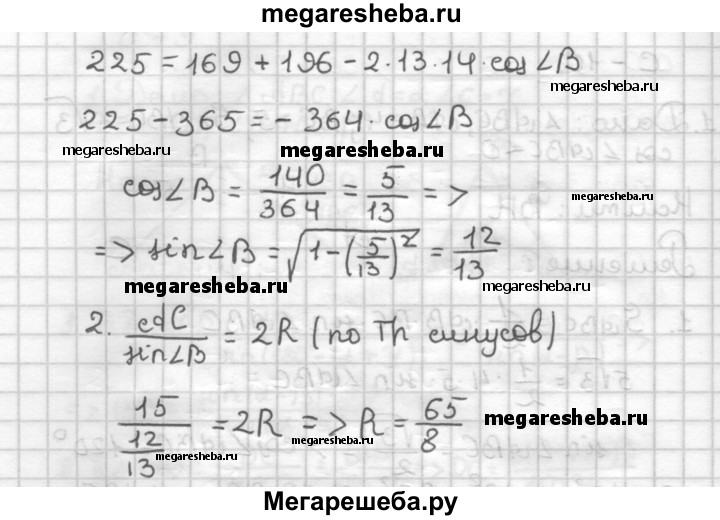 megaresheba.ru
225 = 169 + 196 - 2 · 13 · 14 · cos∠B
megaresheba.ru
225 - 365 = - 364 · cos∠B
megaresheba.ru megaresheba.ru
cos∠B = 140/364 = 5/13 =>
megaresheba.ru
=> sin∠B = √(1-(5/13)²) = 12/13
megaresheba.ru megaresheba.ru
2. AC/sin∠B = 2R (по Th синусов)
15/(12/13) = 2R => R = 65/8
megaresheba.ru megaresheba.ru megaresheba.ru
Мегарешеба.ру